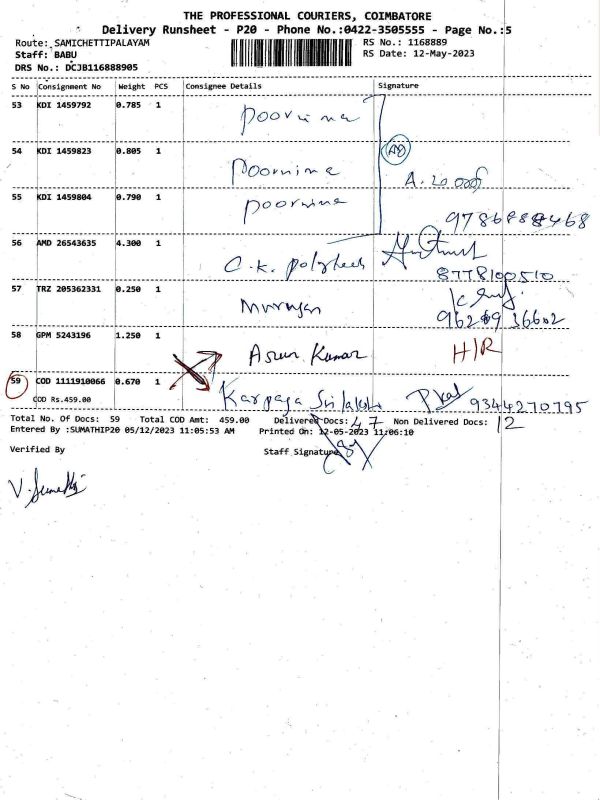 THE PROFESSIONAL COURIERS, COIMBATORE
Delivery Runsheet - P20 - Phone No.:0422-3505555 - Page No.:5
Route: SAMICHETTIPALAYAM RS No.: 1168889
Staff: BABU RS Date: 12-May-2023
DRS No.: DCJB116888905
S No Consignment No Weight PCS Consignee Details Signature
53 KDI 1459792 0.785 1 Poornima
54 KDI 1459823 0.805 1 Poornima
55 KDI 1459804 0.790 1 Poornima
56 AMD 26543635 4.300 1 C.K. polytech
8778100510
57 TRZ 205362331 0.250 1 Murugan
58 GPM 5243196 1.250 1 Arun Kumar H/R
59 COD 1111910066 0.670 1 Karpaga 9344270795
COD Rs.459.00
Total No. Of Docs: 59 Total COD Amt: 459.00 Delivered Docs: 47 Non Delivered Docs: 12
Entered By :SUMATHIP20 05/12/2023 11:05:53 AM Printed On: 12-05-2023 11:06:10
Verified By Staff Signature